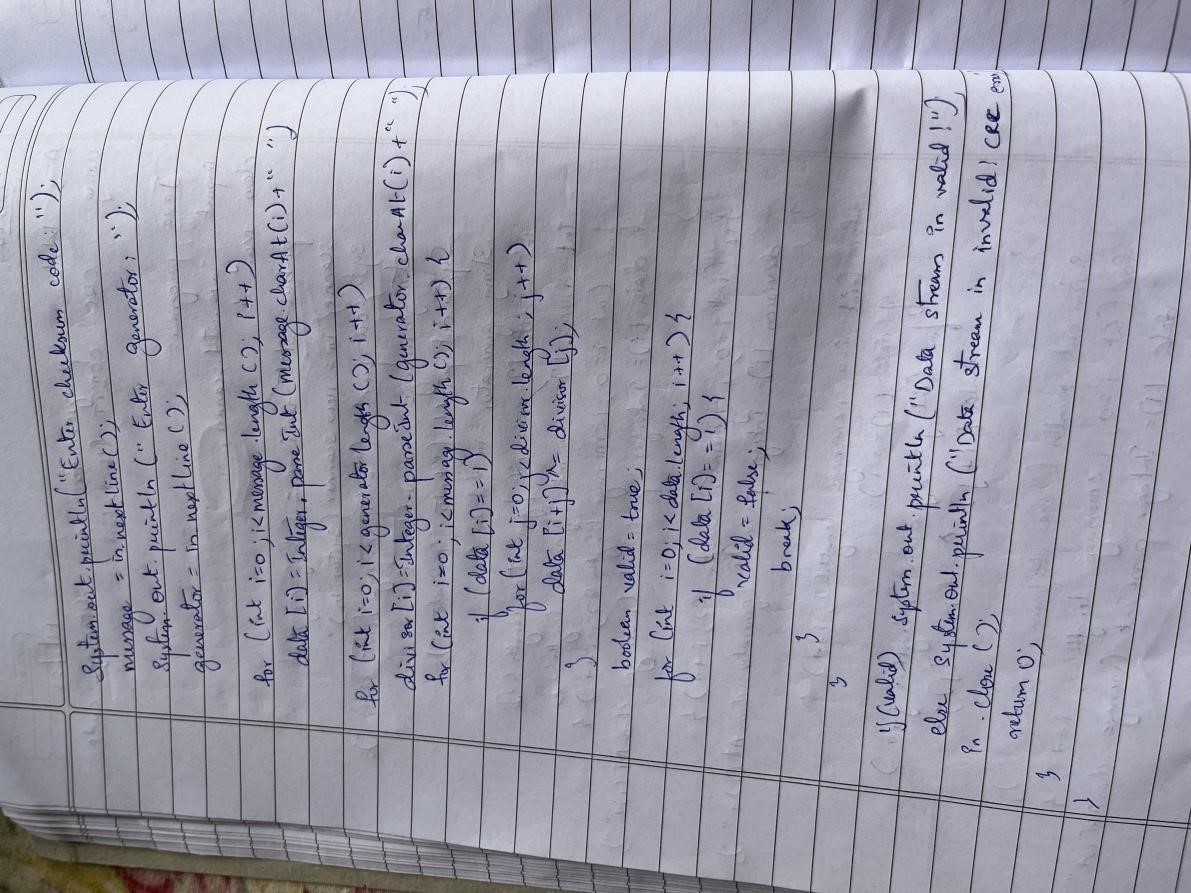 System.out.println("Enter checksum code: ");
message = in.nextline();
System.out.println("Enter generator: ");
generator = in.nextline();
for (int i=0; i<message.length(); i++)
data[i]=Integer.parseInt(message.charAt(i)+" ")
for (int i=0; i<generator.length(); i++)
divisor[i]=Integer.parseInt(generator.charAt(i)+" ");
for (int i=0; i<messag.length(); i++) {
if (data[i]==1)
for (int j=0; j<divisor.length; j++)
data[i+j]^= divisor[j];
}
boolean valid=true;
for (int i=0; i<data.length; i++) {
if (data[i]==1) {
valid=false;
break;
}
}
if(valid) System.out.println("Data stream in valid!");
else System.out.println("Data stream in invalid! CRC
in.close();
return 0;
}
}